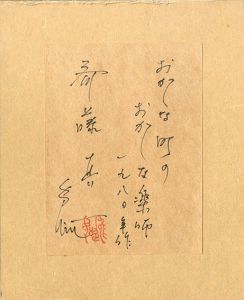 おかしな町の
おかしな薬師
一九八〇年作
斎藤真一